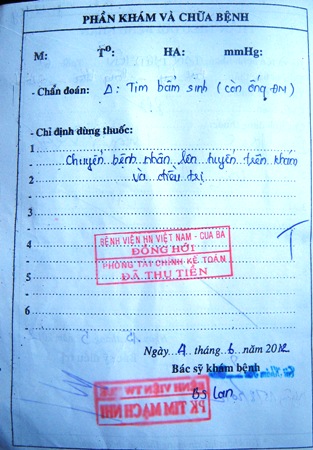 PHẦN KHÁM VÀ CHỮA BỆNH
M: T⁰: HA: mmHg:
- Chẩn đoán: Δ: Tim bẩm sinh (còn ống ĐM)
- Chỉ định dùng thuốc:
1
Chuyển bệnh nhân lên tuyến trên khám
2
và điều trị
3
4
BỆNH VIỆN HN VIỆT NAM - CUA BA
ĐỒNG HỚI
PHÒNG TÀI CHÍNH KẾ TOÁN
ĐÃ THU TIỀN
5
6
Ngày 4 tháng 6 năm 2012
Bác sỹ khám bệnh
BS Lan
BỆNH VIỆN TW
PK TIM MẠCH NHI